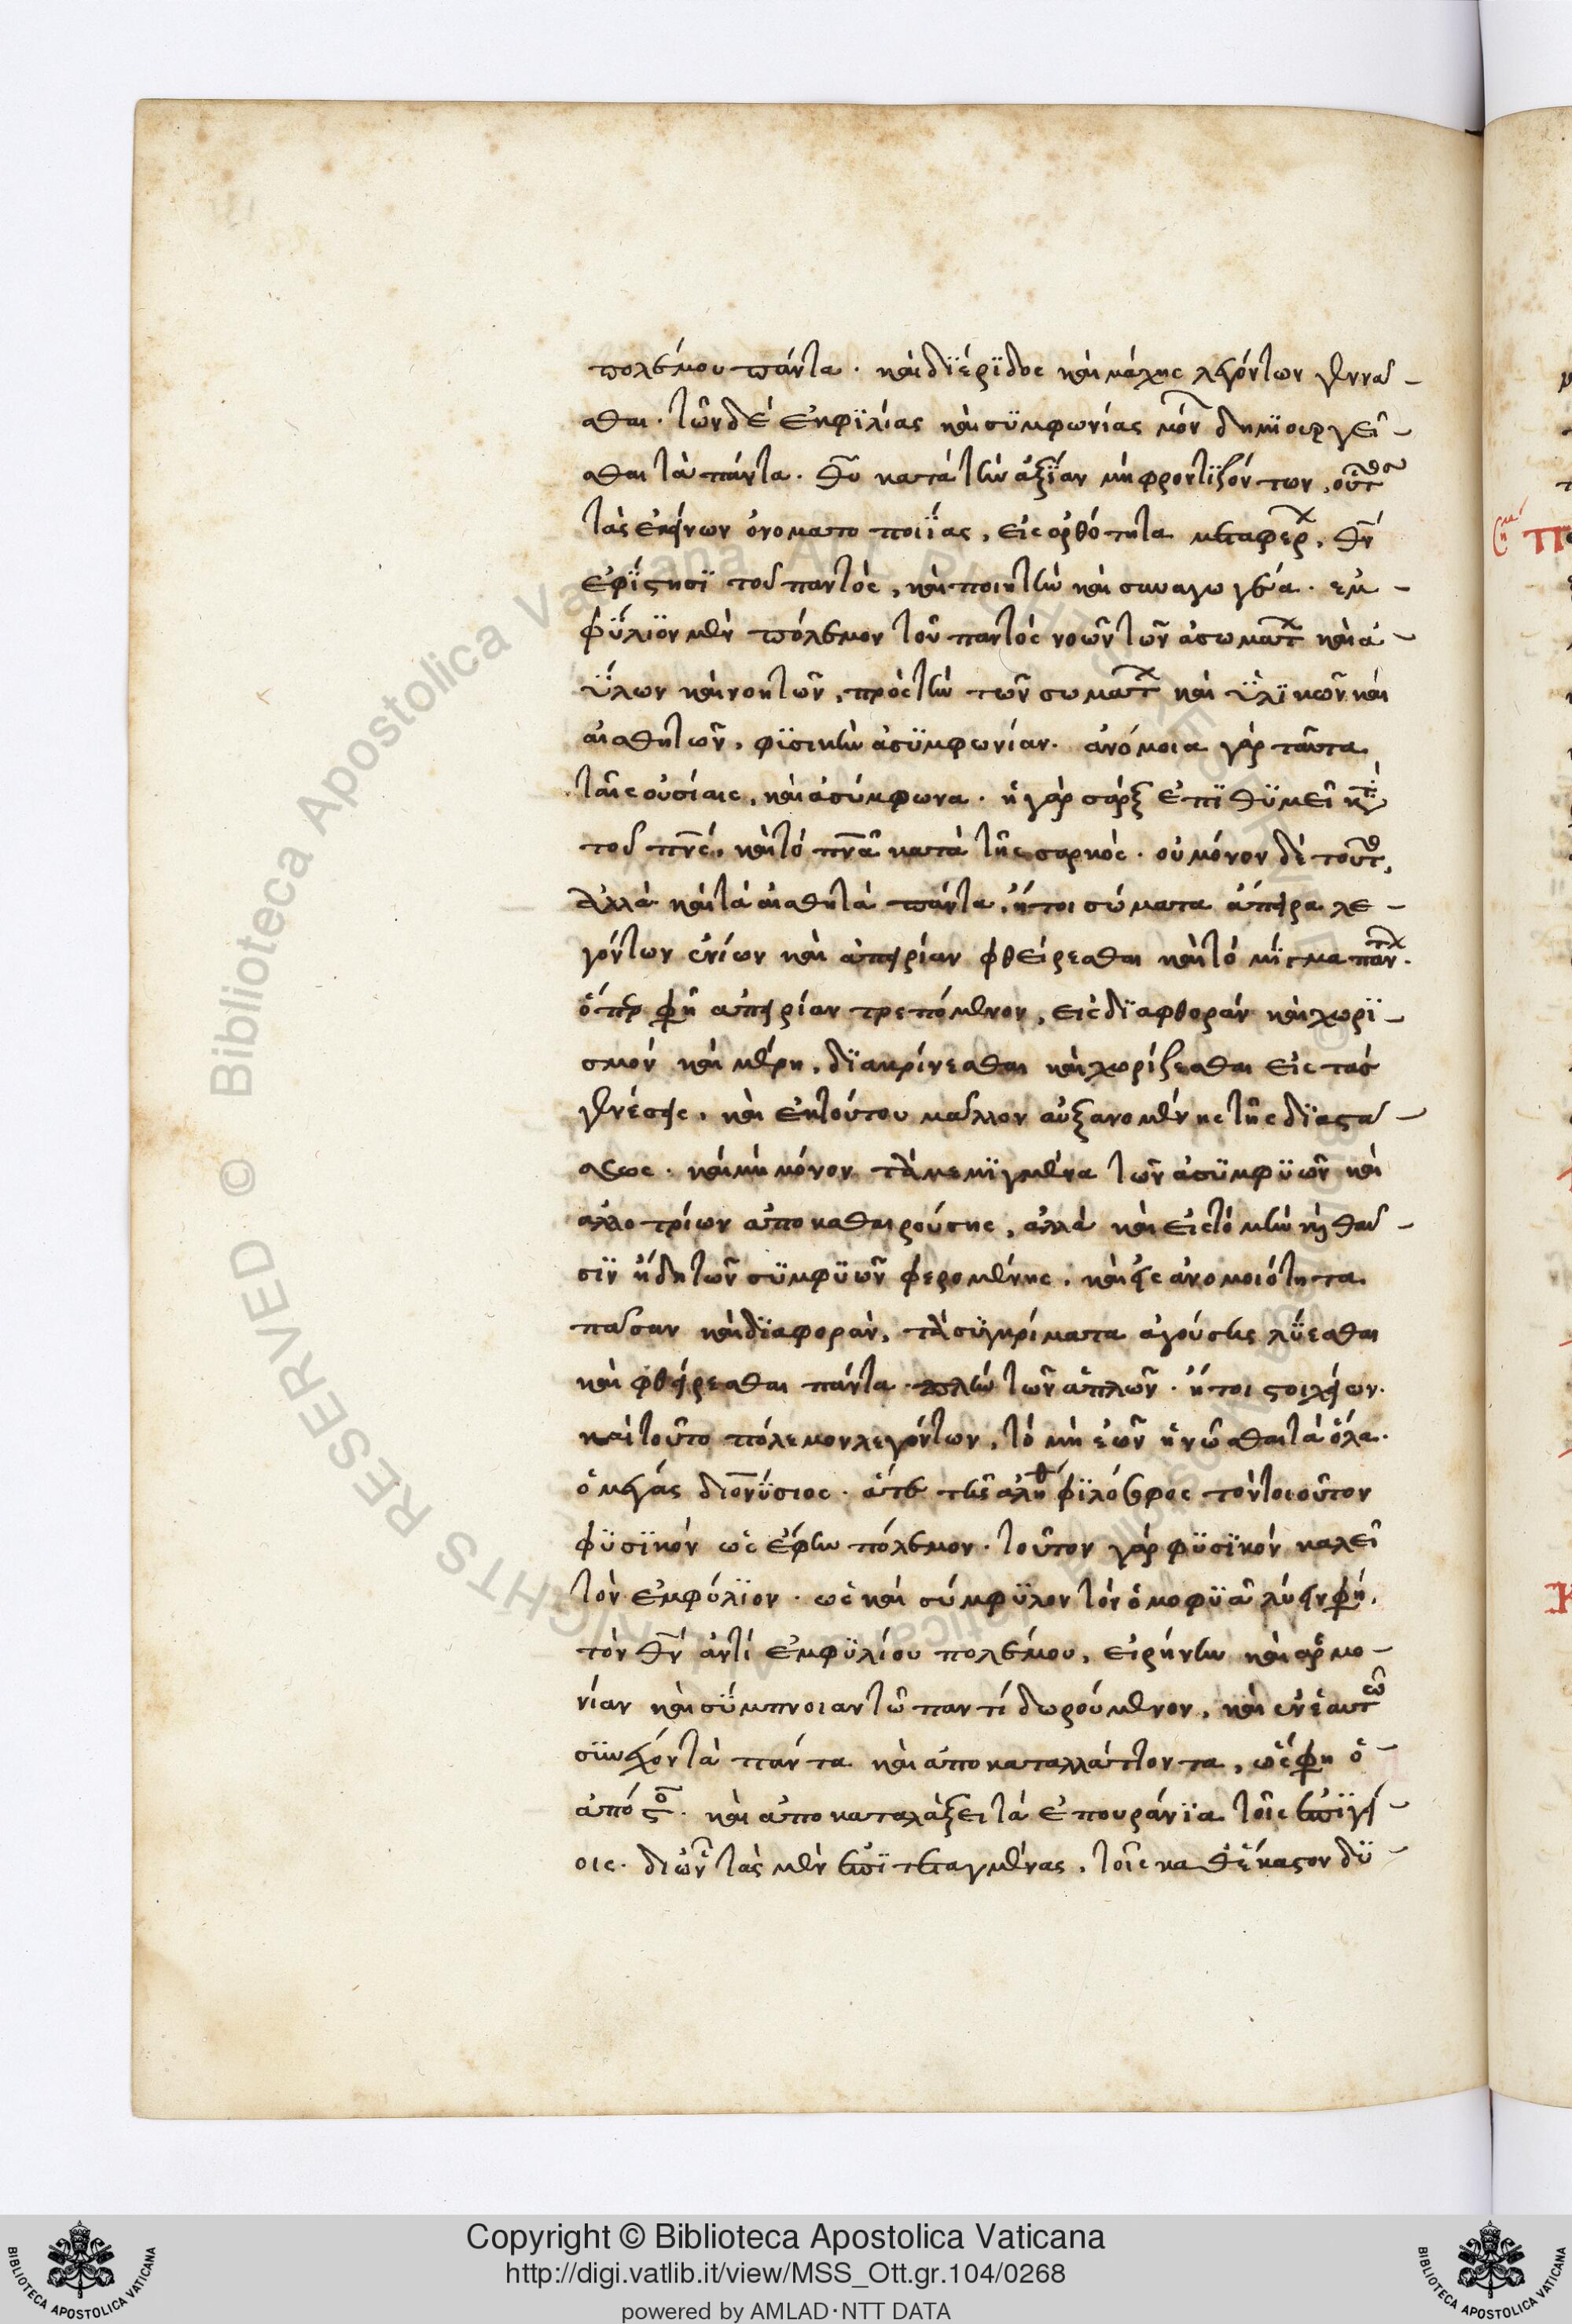 πολέμου πάντα. καὶ δι' έριδος καὶ μάχης λεγόντων γεννᾶ-
σθαι. τῶν δὲ ἐκ φιλίας καὶ συμφωνίας μόν δημιουργεῖ-
σθαι τὰ πάντα. θυ κατὰ τὴν ἀξίαν μὴ φροντιζόντων, οὗτ
τὰς ἐκείνων ὀνοματοποιΐας, εἰς ὀρθότητα μεταφερ, θν
ἐφίστησι τοῦ παντὸς, καὶ ποιητὴν καὶ συναγωγέα. ἐμ-
φύλιον μὲν πόλεμον τοῦ παντὸς νοῶν τῶν ἀσωμάτ καὶ ἀ-
ΰλων καὶ νοητῶν, πρὸς τὴν τῶν σωματ καὶ ὑλικῶν καὶ
αἰσθητῶν, φυσικὴν ἀσυμφωνίαν. ἀνόμοια γὰρ ταῦτα
ταῖς οὐσίαις, καὶ ἀσύμφωνα. ἡ γὰρ σὰρξ ἐπιθυμεῖ κτ
τοῦ πνς, καὶ τὸ πνα κατὰ τῆς σαρκός. οὐ μόνον δὲ τοῦτ,
ἀλλὰ καὶ τὰ αἰσθητὰ πάντα, ἤτοι σώματα ἄπειρα λε-
γόντων ἐνίων καὶ ἀπειρίαν φθείρεσθαι καὶ τὸ μῖγμα παν.
ὅπερ φη ἀπειρίαν τρεπόμενον, εἰς διαφθορὰν καὶ χωρι-
σμὸν καὶ μέρη, διακρίνεσθαι καὶ χωρίζεσθαι εἰς τὰς
γενέσεις. καὶ ἐκ τούτου μᾶλλον αὐξανομένης τῆς διαστά-
σεως. καὶ μὴ μόνον τὰ μεμιγμένα τῶν ἀσυμφυῶν καὶ
ἀλλοτρίων ἀποκαθαιρούσης, ἀλλὰ καὶ εἰς τὸ
σιν ἤδη τῶν συμφυῶν φερομένης. καὶ εἰς ἀνομοιότητα
πᾶσαν καὶ διαφορὰν, τὰ συγκρίματα ἀγούσης λύεσθαι
καὶ φθείρεσθαι πάντα πλὴν τῶν ἁπλῶν. ἤτοι στοιχείων.
καὶ τοῦτο πόλεμον λεγόντων, τὸ μὴ ἐῶν ἡνῶσθαι τὰ ὅλα.
ὁ μέγας διονύσιος. ἅτε τῆς ἀληθ φιλόθεος τὸν τοιοῦτον
φυσικὸν ὡς ἔφην πόλεμον. τοῦτον γὰρ φυσικὸν καλεῖ
τὸν ἐμφύλιον. ὡς καὶ σύμφυλον τὸν ὁμοφυᾶ λύειν φη,
τὸν θν ἀντὶ ἐμφυλίου πολέμου, εἰρήνην καὶ ἁρμο-
νίαν καὶ σύμπνοιαν τῶ παντὶ δωρούμενον, καὶ ἐν ἑαυτῶ
συνέχοντα πάντα καὶ ἀποκαταλλάττοντα, ὡς φη ὁ
ἀπόστο. καὶ ἀποκαταλάξει τὰ ἐπουράνια τοῖς ἐπιγεί-
οις. δι' ὧν τὰς μὲν ἐπιτεταγμένας, τοῖς καθέκαστον δυ-
Copyright © Biblioteca Apostolica Vaticana
http://digi.vatlib.it/view/MSS_Ott.gr.104/0268
powered by AMLAD·NTT DATA
BIBLIOTECA APOSTOLICA VATICANA
BIBLIOTECA APOSTOLICA VATICANA